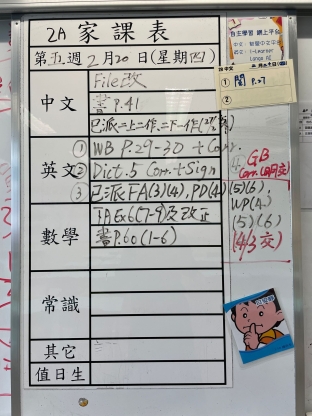 2A 家課表
第五週 2月20日(星期四)
中文
File改
書 P.41
已派二上二作、二下一作(27/2
英文
① WB P.29-30 + Corr.
② Dict.5 Corr.+Sign
③ 已派FA(3)(4), PD(4)(5)(6),
WP(4)
(5)(6)
(4/3 交)
GB
Corr.
數學
TA Ex6(7-9)及改正
書P.60(1-6)
常識
其它
值日生
自主學習 網上平台
i-Learner
2A 中文
① 閱 P.27
②